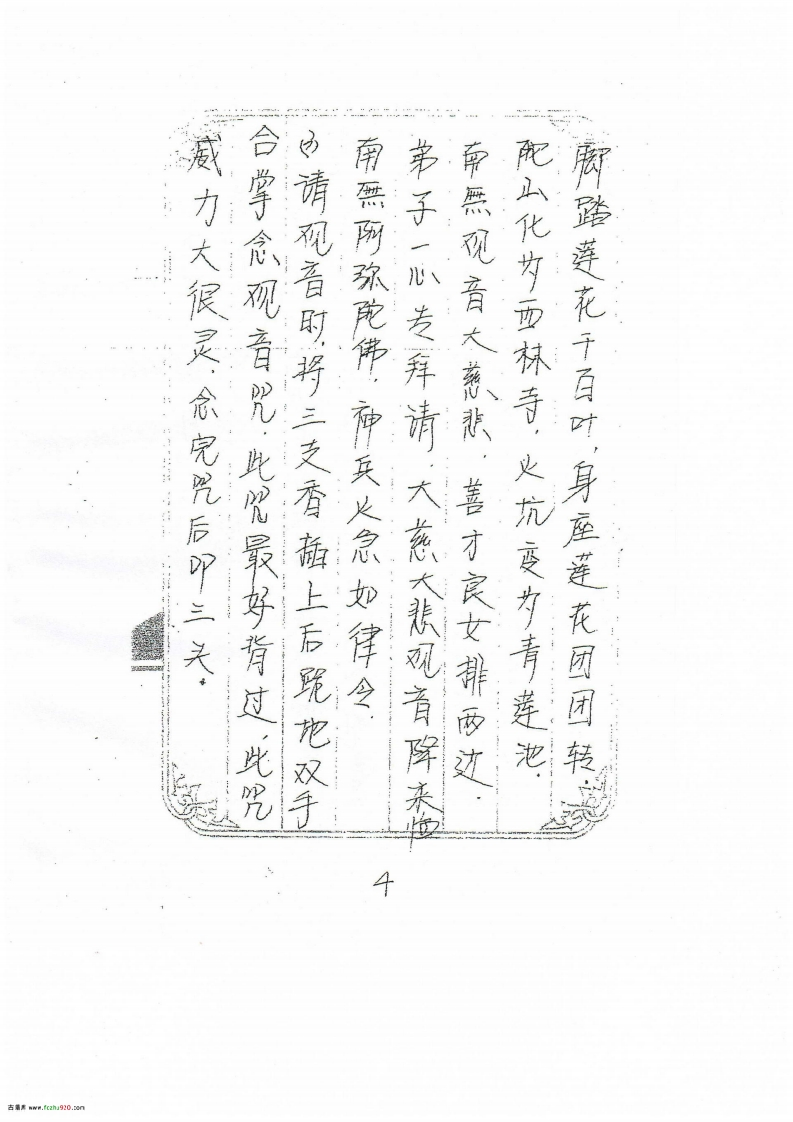 脚踏莲花千百叶，身座莲花团团转．
陀山化为西林寺．火坑变为青莲池．
南無观音大慈悲．善才良女排两边．
弟子一心专拜请．大慈大悲观音降来临
南無阿弥陀佛．神兵火急如律令．
请观音时，将三支香插上后跪地双手
合掌念观音咒．此咒最好背过，此咒
威力大很灵．念完咒后叩三头．
4
古籍库 www.fczhu920.com